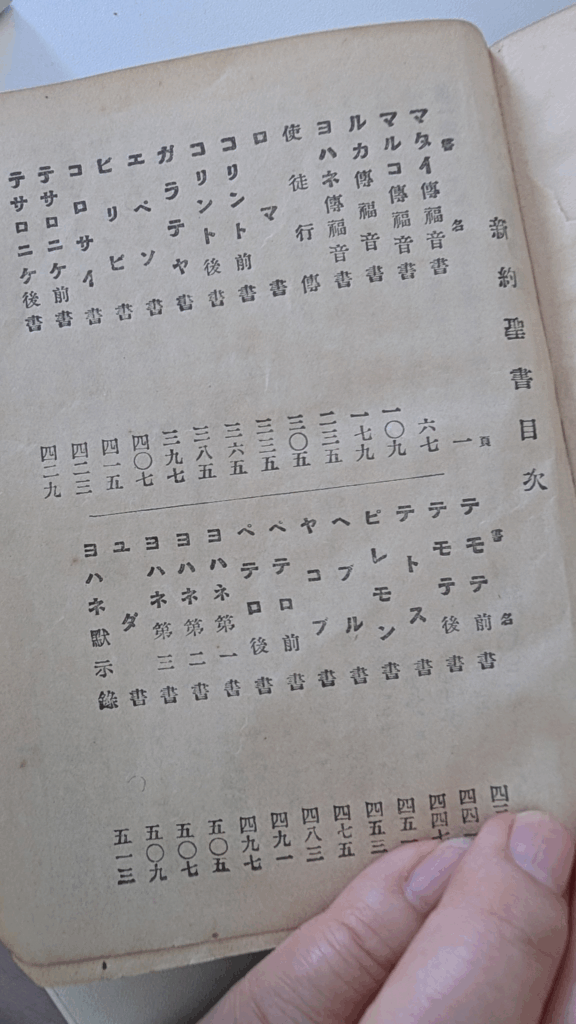 新約聖書目次
書名 頁
マタイ傳福音書 一
マルコ傳福音書 六七
ルカ傳福音書 一〇九
ヨハネ傳福音書 一七九
使徒行傳 二三五
ロマ書 三〇五
コリント前書 三三五
コリント後書 三六五
ガラテヤ書 三八五
エペソ書 三九七
ピリピ書 四〇七
コロサイ書 四一五
テサロニケ前書 四二三
テサロニケ後書 四二九
書名
テモテ前書
テモテ後書
テトス書 四四七
ピレモン書
ヘブル書 四五三
ヤコブ書 四七五
ペテロ前書 四八三
ペテロ後書 四九一
ヨハネ第一書 四九七
ヨハネ第二書 五〇五
ヨハネ第三書 五〇七
ユダ書 五〇九
ヨハネ默示錄 五一三